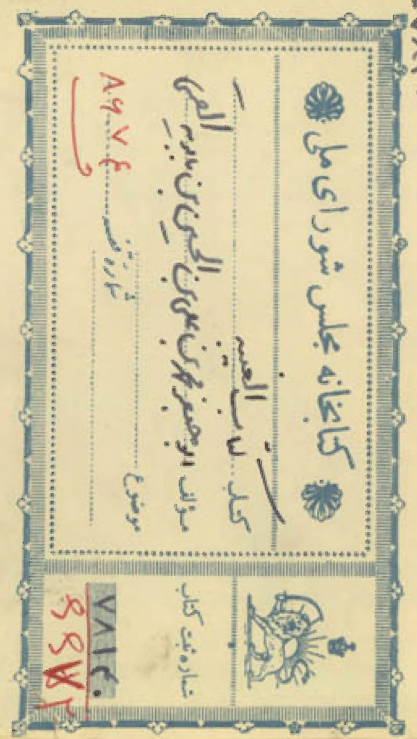 کتابخانه مجلس شورای ملی
کتاب کتاب الغیبه
مؤلف ابو جعفر محمد بن علی بن الحسین بن بابویه القمی
موضوع
شماره قفسه
۸۶۷۴
شماره ثبت کتاب
۷۸۱۴۰